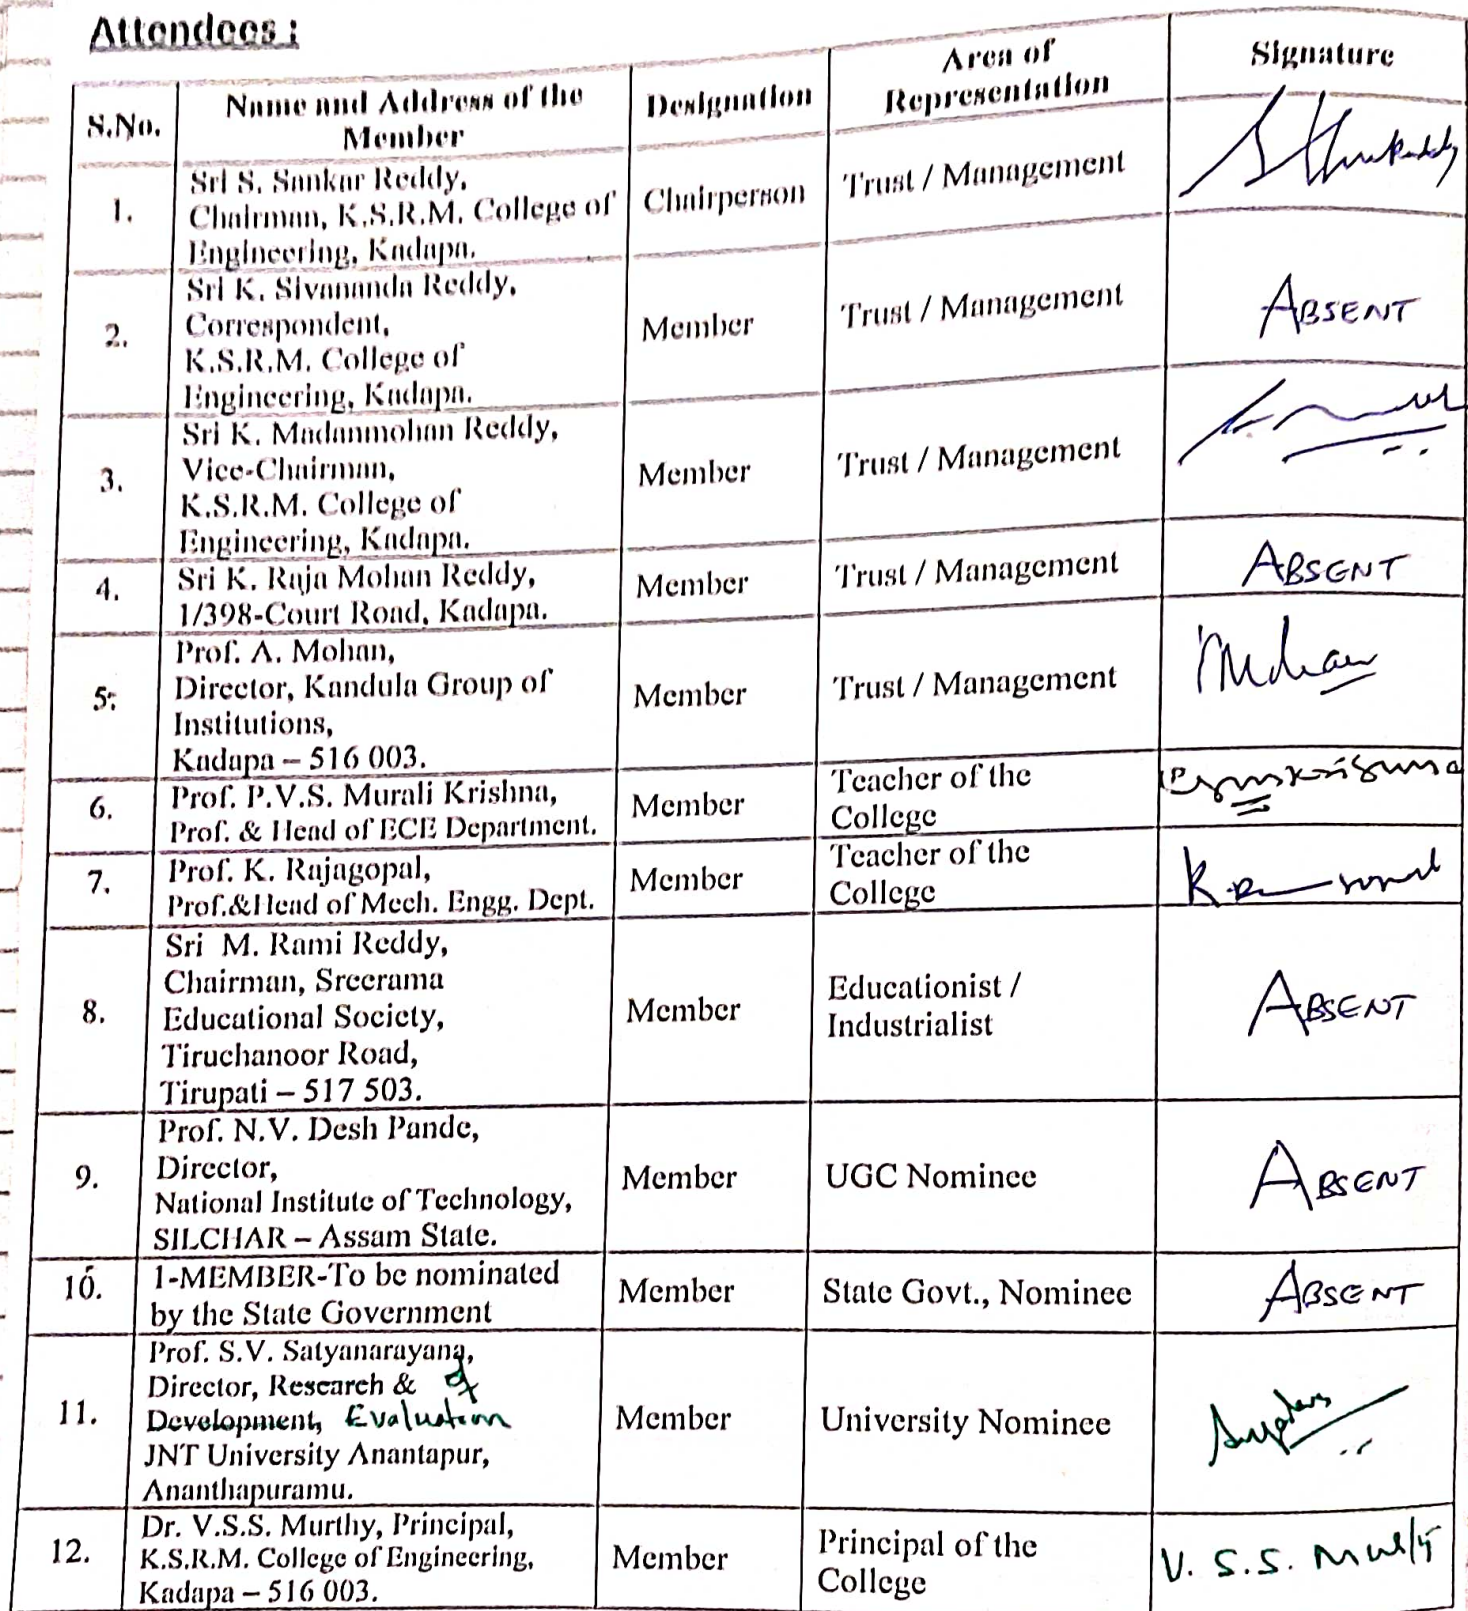 Attendees :
S.No.
Name and Address of the
Member
Designation
Area of
Representation
Signature
1.
Sri S. Sankar Reddy,
Chairman, K.S.R.M. College of
Engineering, Kadapa.
Chairperson
Trust / Management
2.
Sri K. Sivananda Reddy,
Correspondent,
K.S.R.M. College of
Engineering, Kadapa.
Member
Trust / Management
ABSENT
3.
Sri K. Madanmohan Reddy,
Vice-Chairman,
K.S.R.M. College of
Engineering, Kadapa.
Member
Trust / Management
4.
Sri K. Raja Mohan Reddy,
1/398-Court Road, Kadapa.
Member
Trust / Management
ABSENT
5.
Prof. A. Mohan,
Director, Kandula Group of
Institutions,
Kadapa – 516 003.
Member
Trust / Management
Mohan
6.
Prof. P.V.S. Murali Krishna,
Prof. & Head of ECE Department.
Member
Teacher of the
College
7.
Prof. K. Rajagopal,
Prof.&Head of Mech. Engg. Dept.
Member
Teacher of the
College
8.
Sri M. Rami Reddy,
Chairman, Sreerama
Educational Society,
Tiruchanoor Road,
Tirupati – 517 503.
Member
Educationist /
Industrialist
ABSENT
9.
Prof. N.V. Desh Pande,
Director,
National Institute of Technology,
SILCHAR – Assam State.
Member
UGC Nominee
ABSENT
10.
1-MEMBER-To be nominated
by the State Government
Member
State Govt., Nominee
ABSENT
11.
Prof. S.V. Satyanarayana,
Director, Research & of
Development, Evaluation
JNT University Anantapur,
Ananthapuramu.
Member
University Nominee
12.
Dr. V.S.S. Murthy, Principal,
K.S.R.M. College of Engineering,
Kadapa – 516 003.
Member
Principal of the
College
V. S. S. Murty